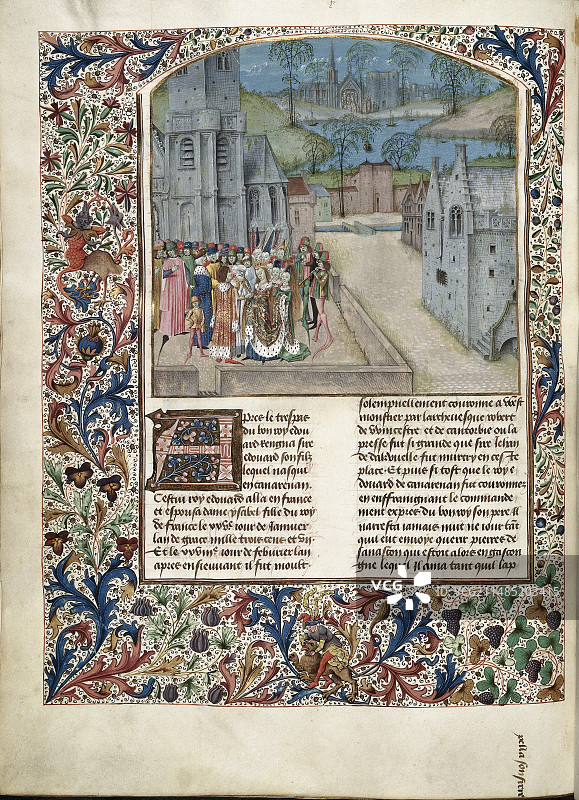 Apres le trespas
du bon roy edou
ard Regna sire
edouard son filz
lequel nasqui
en carnarenan.
Cestui roy edouard alla en france
et espousa dame ysabel fille du roy
de france le xxviije. iour de Januier
lan de grace mille trois cens et vij
Et le xxiiije. iour de feburier lan
apres en sieuuant il fut moult
solempnellement couronne a West
monstier par larcheuesque robert
de Wincestre et de cantorbie ou la
presse fut si grande que sire Jehan
de bakeduelle fut murtry en ces
place. Et puis si tost que le roy e
douard de carnarenan fut couronne
en enffraingnant le commande
ment expres du bon roy son pere Il
narresta iamais nuit ne iour tant
quil eut enuoye querir pierres de
gauascon qui estoit alors en gascon
gne lequel il ama tant quil lap
VCG
pella son frere